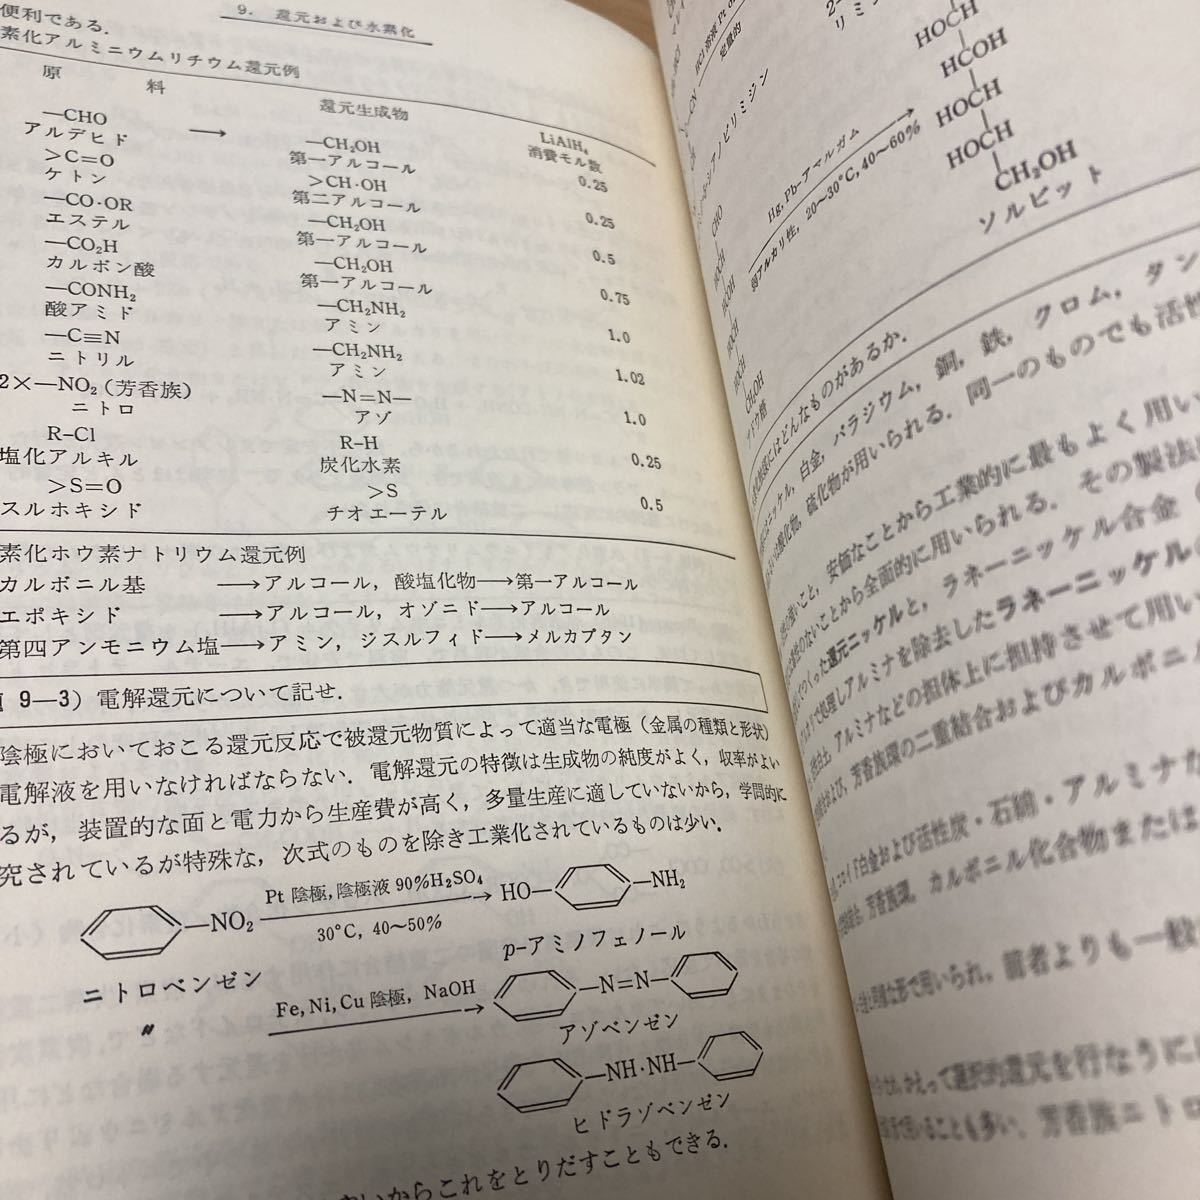 9. 還元および水素化
便利である.
素化アルミニウムリチウム還元例
原 料
還元生成物
LiAlH₄
消費モル数
—CHO ⟶ —CH₂OH 0.25
アルデヒド 第一アルコール
>C=O >CH·OH 0.25
ケトン 第二アルコール
—CO·OR —CH₂OH 0.5
エステル 第一アルコール
—CO₂H —CH₂OH 0.75
カルボン酸 第一アルコール
—CONH₂ —CH₂NH₂ 1.0
酸アミド アミン
—C≡N —CH₂NH₂ 1.02
ニトリル アミン
2×—NO₂(芳香族) —N=N— 1.0
ニトロ アゾ
R-Cl R-H 0.25
塩化アルキル 炭化水素
>S=O >S 0.5
スルホキシド チオエーテル
素化ホウ素ナトリウム還元例
カルボニル基 ⟶アルコール, 酸塩化物⟶第一アルコール
エポキシド ⟶アルコール, オゾニド⟶アルコール
第四アンモニウム塩⟶アミン, ジスルフィド⟶メルカプタン
9—3) 電解還元について記せ.
陰極においておこる還元反応で被還元物質によって適当な電極(金属の種類と形状)
電解液を用いなければならない. 電解還元の特徴は生成物の純度がよく, 収率がよい
るが, 装置的な面と電力から生産費が高く, 多量生産に適していないから, 学問的に
究されているが特殊な, 次式のものを除き工業化されているものは少い.
—NO₂ Pt 陰極, 陰極液 90%H₂SO₄ HO— —NH₂
30°C, 40〜50%
ニトロベンゼン p-アミノフェノール
〃 Fe, Ni, Cu 陰極, NaOH —N=N—
アゾベンゼン
—NH·NH—
ヒドラゾベンゼン
からこれをとりだすこともできる.
HOCH
HCOH
HOCH
HOCH
CH₂OH
ソルビット
Hg, Pb-アマルガム
弱アルカリ性, 20〜30°C, 40〜60%
CHO
HOCH
HCOH
HOCH
HOCH
CH₂OH
ブドウ糖
にはどんなものがあるか.
ニッケル, 白金, パラジウム, 銅, 鉄, クロム, タン
硫化物が用いられる. 同一のものでも活性
強いこと, 安価なことから工業的に最もよく用い
のないことから全面的に用いられる. その製法
つくった還元ニッケルと, ラネーニッケル合金
で処理しアルミナを除去したラネーニッケル
アルミナなどの担体上に担持させて用い
芳香族環の二重結合およびカルボニル
コロイド白金および活性炭・石綿・アルミナな
芳香族環, カルボニル化合物または
な形で用いられ, 前者よりも一般
って選択的還元を行なうには
ことも多い. 芳香族ニトロ